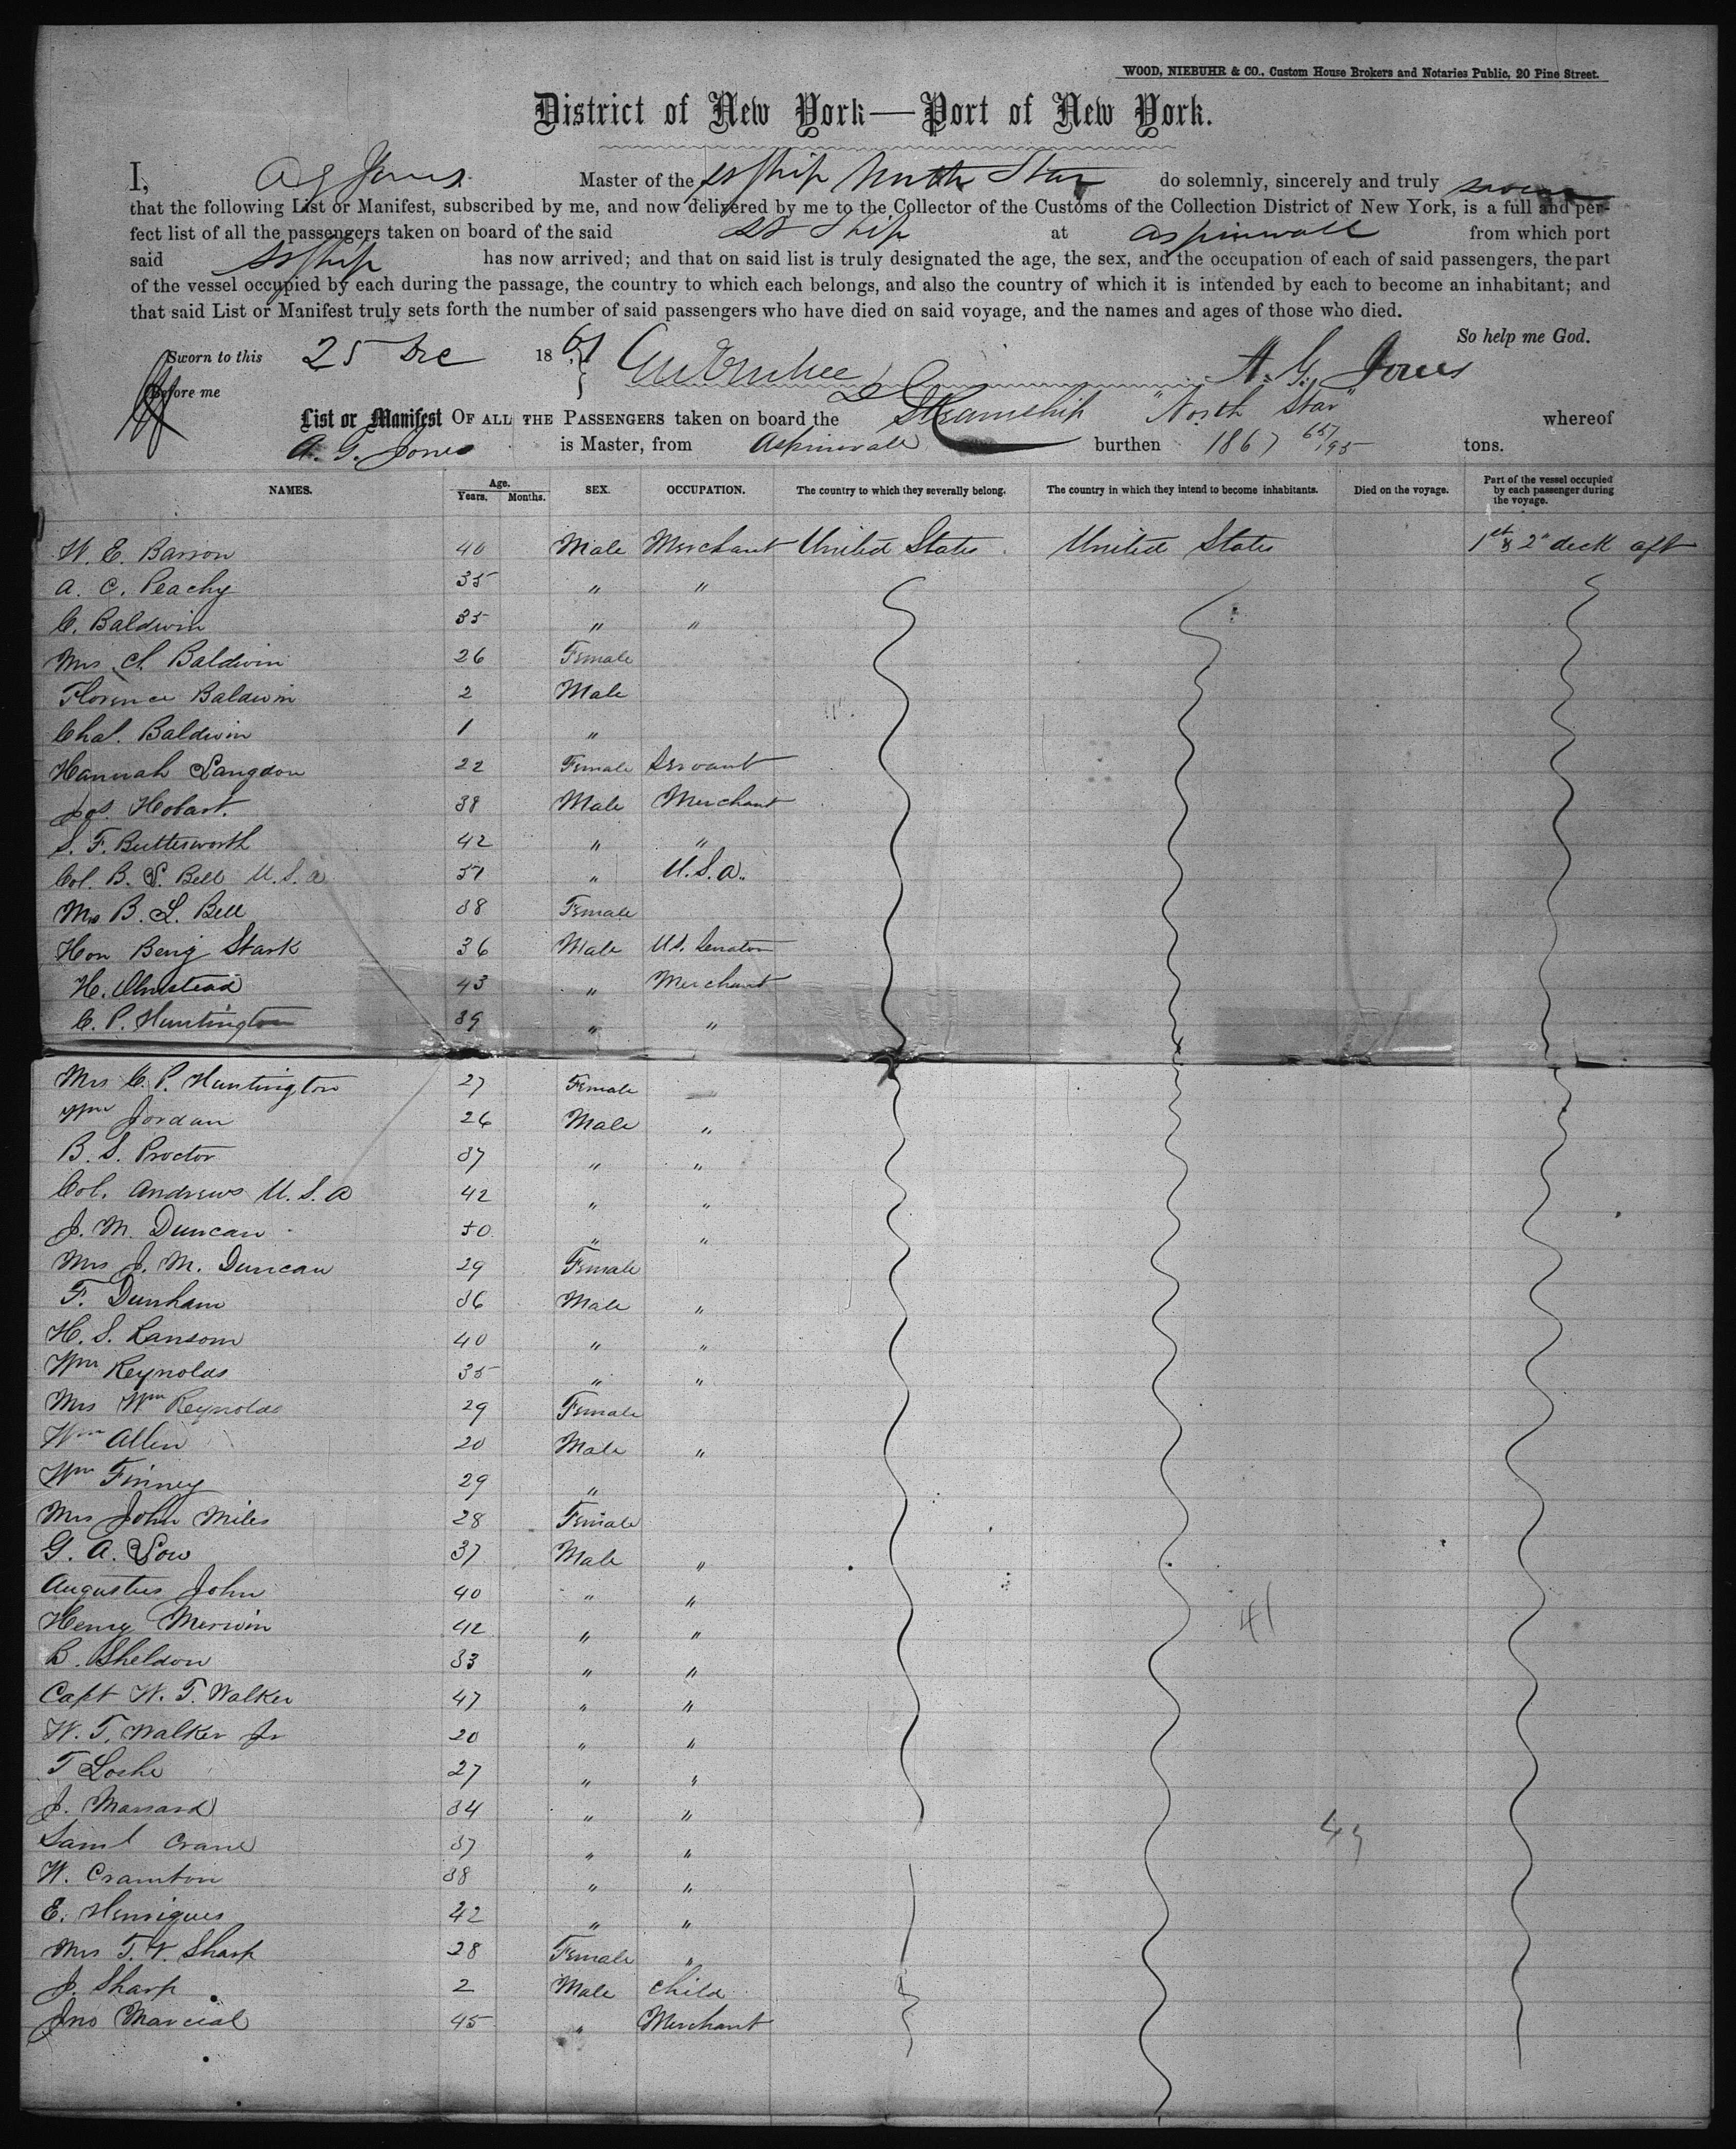 WOOD, NIEBUHR & CO., Custom House Brokers and Notaries Public, 20 Pine Street.
District of New York—Port of New York.
I, A G Jones Master of the SShip North Star do solemnly, sincerely and truly swear
that the following List or Manifest, subscribed by me, and now delivered by me to the Collector of the Customs of the Collection District of New York, is a full and per-
fect list of all the passengers taken on board of the said SS Ship at Aspinwall from which port
said SShip has now arrived; and that on said list is truly designated the age, the sex, and the occupation of each of said passengers, the part
of the vessel occupied by each during the passage, the country to which each belongs, and also the country of which it is intended by each to become an inhabitant; and
that said List or Manifest truly sets forth the number of said passengers who have died on said voyage, and the names and ages of those who died.
So help me God.
Sworn to this 25 Dec 1861 A. G. Jones
Before me
List or Manifest OF ALL THE PASSENGERS taken on board the Steamship "North Star" whereof
A. G. Jones is Master, from Aspinwall burthen 1867 tons.
NAMES. Age. Years. Months. SEX. OCCUPATION. The country to which they severally belong. The country in which they intend to become inhabitants. Died on the voyage. Part of the vessel occupied by each passenger during the voyage.
W. E. Barron 40 Male Merchant United States United States 1st & 2" deck aft
A. C. Peachy 35 " "
C. Baldwin 35 " "
Mrs Baldwin 26 Female
Florence Baldwin 2 Male
Chas. Baldwin 1 "
Hannah Langdon 22 Female Servant
Jos. Hobart. 38 Male Merchant
S. F. Butterworth 42 " "
Col. B. L. Bell U.S.A 57 " U.S.A.
Mrs B. L. Bell 38 Female
Hon Benj Stark 36 Male U.S. Senator
H. Olmstead 43 " Merchant
C. P. Huntington 39 " "
Mrs C. P. Huntington 27 Female
Wm Jordan 26 Male "
B. S. Proctor 37 " "
Col. Andrews U.S.A 42 " "
J. M. Duncan 50 " "
Mrs J. M. Duncan 29 Female
F. Dunham 36 Male "
H. S. Ransom 40 " "
Wm Reynolds 35 " "
Mrs Wm Reynolds 29 Female
Wm Allen 20 Male "
Wm Finney 29 "
Mrs John Miles 28 Female
G. A. Low 37 Male "
Augustus John 40 " "
Henry Merwin 42 " "
B. Sheldon 33 " "
Capt W. T. Walker 47 " "
W. T. Walker Jr 20 " "
T Loche 27 " "
J. 34 " "
Saml Crane 37 " "
W. Cramton 38 " "
E. Henriques 42 " "
Mrs T. V. Sharp 28 Female "
J. Sharp 2 Male Child
Jno Marcial 45 " Merchant
41
49